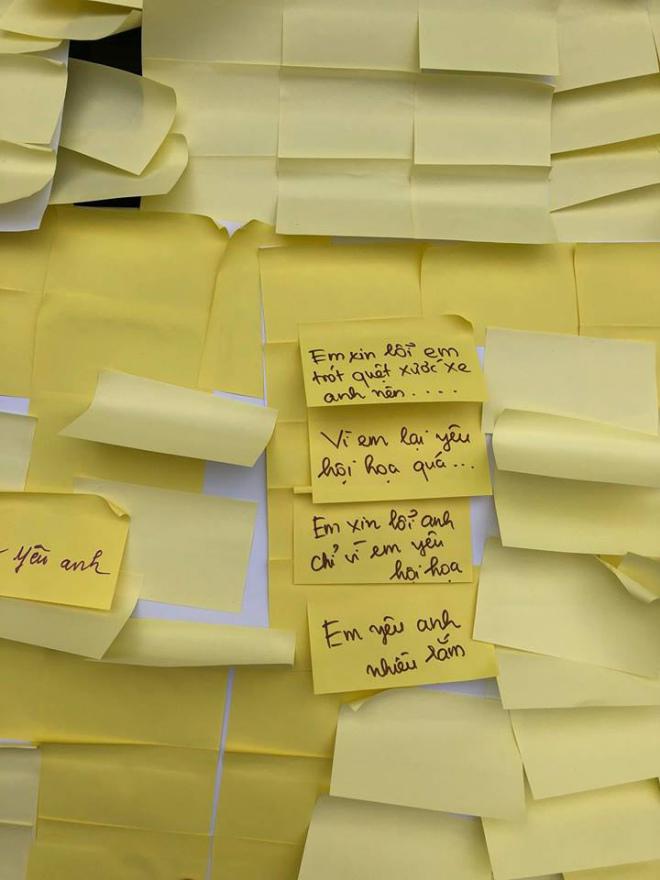 Em xin lỗi em
trót quệt xước xe
anh nên . . . .
Vì em lại yêu
hội họa quá...
Em xin lỗi anh
chỉ vì em yêu
hội họa
yêu anh
Em yêu anh
nhiều lắm